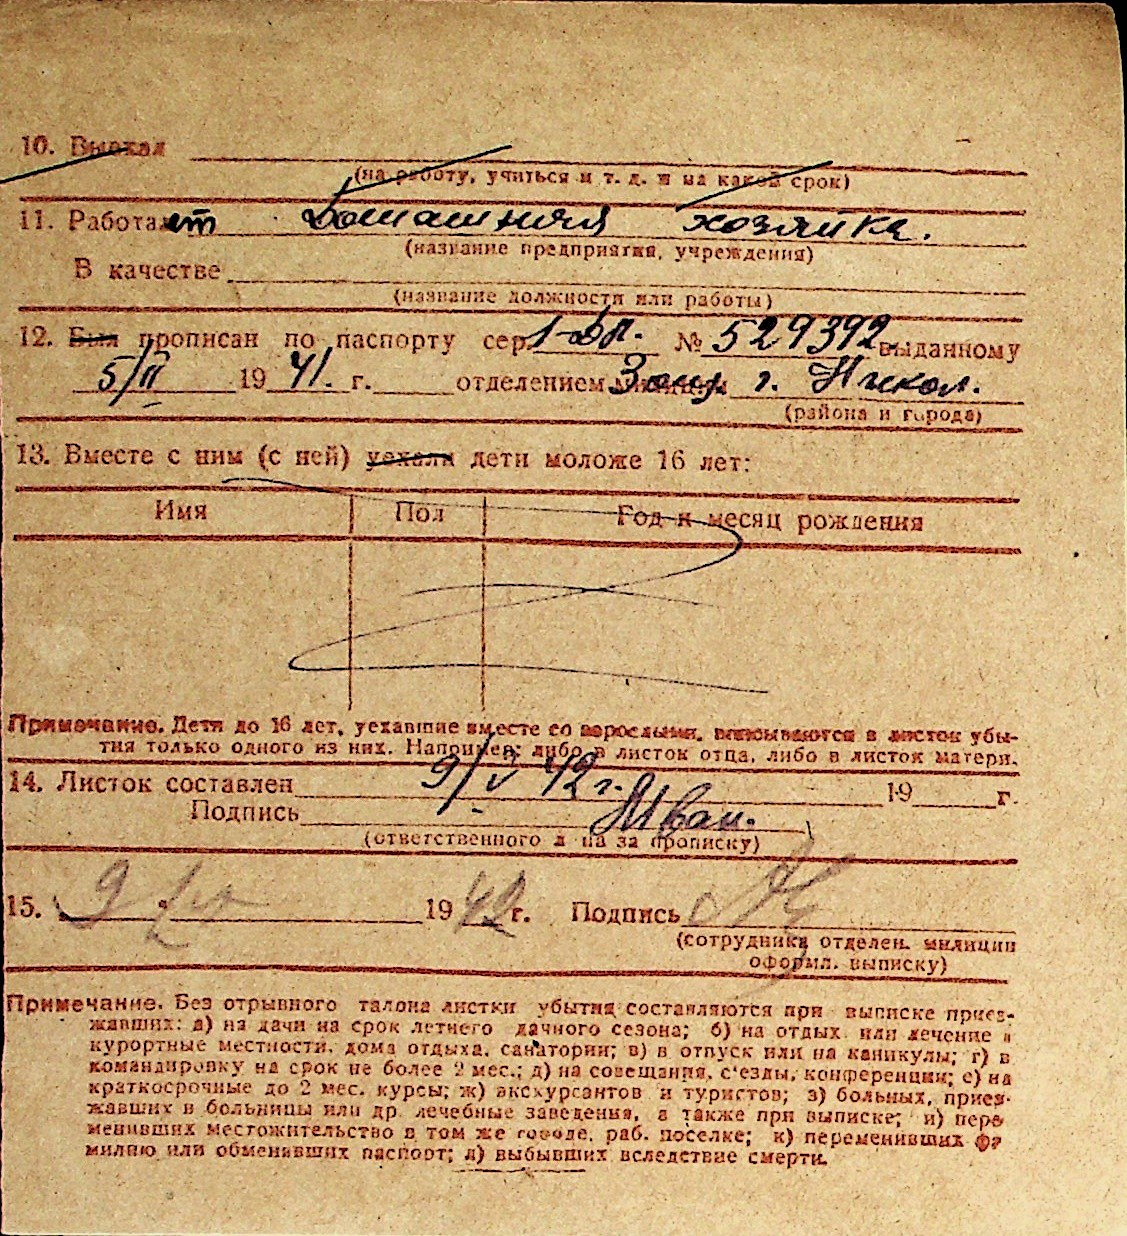 10. Выехал
(на работу, учиться и т. д. и на какой срок)
11. Работает Домашняя хозяйка.
(название предприятия, учреждения)
В качестве
(название должности или работы)
12. Был прописан по паспорту сер. № 529392 выданному
5/II 1941. г. отделением милиции г. Никол.
(района и города)
13. Вместе с ним (с ней) уехали дети моложе 16 лет:
Имя Пол Год и месяц рождения
Примечание. Дети до 16 лет, уехавшие вместе со взрослыми, вписываются в листок убы-
тия только одного из них. Например: либо в листок отца, либо в листок матери.
14. Листок составлен 9/V 42 г. 19 г.
Подпись Иван.
(ответственного л на за прописку)
15. 9 1942 г. Подпись
(сотрудника отделен. милиции
оформл. выписку)
Примечание. Без отрывного талона листки убытия составляются при выписке приез-
жавших: а) на дачи на срок летнего дачного сезона; б) на отдых или лечение в
курортные местности, дома отдыха, санатории; в) в отпуск или на каникулы; г) в
командировку на срок не более 2 мес.; д) на совещания, с'езды, конференции; е) на
краткосрочные до 2 мес. курсы; ж) экскурсантов и туристов; з) больных, приез-
жавших в больницы или др. лечебные заведения, а также при выписке; и) пере
менивших местожительство в том же городе, раб. поселке; к) переменивших фа
милию или обменявших паспорт; л) выбывших вследствие смерти.